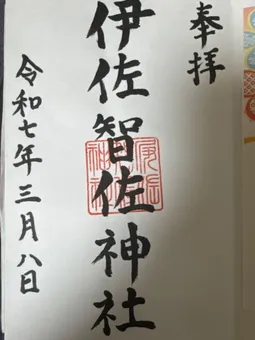 奉拝
伊佐智佐神社
令和七年三月八日